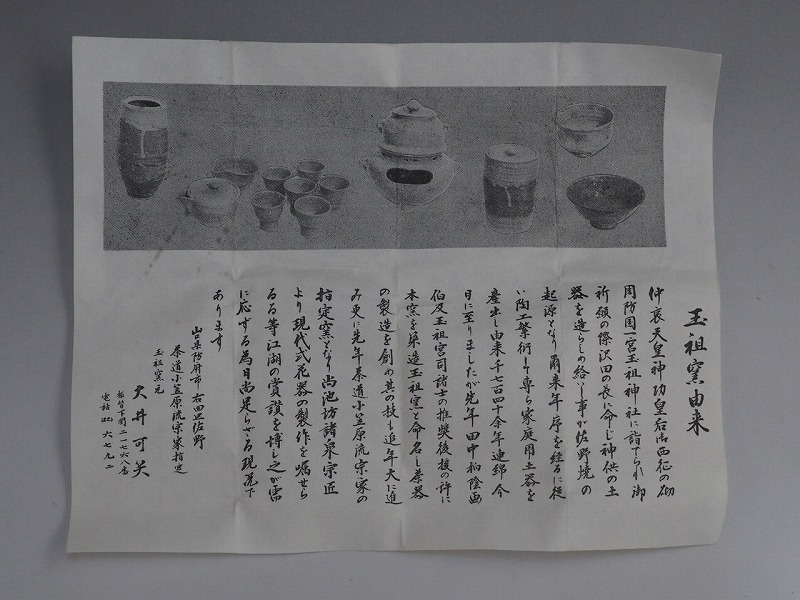 玉祖窯由来
仲哀天皇神功皇后御西征の砌
周防国一宮玉祖神社に詣でられ御
祈願の際沢田の長に命じ神供の土
器を造らしめ給いし事が佐野焼の
起源となり爾来年序を経るに従
い陶工繁衍し専ら家庭用土器を
産出し由来千七百四十余年連綿今
日に至りましたが先年田中柏陰画
伯及玉祖宮司諸士の推奨後援の許に
本窯を築造玉祖窯と命名し茶器
の製造を創め其の技も追年大に進
み更に先年茶道小笠原流宗家の
指定窯となり尚池坊諸泉宗匠
より現代式花器の製作を嘱せら
るる等江湖の賞讃を博し之が需
に応ずる為日尚足らざる現況下
あります
山口県防府市右田区佐野
茶道小笠原流宗家指定
玉祖窯元
大井可笑
振替下関二一七六八番
電話 六七九二